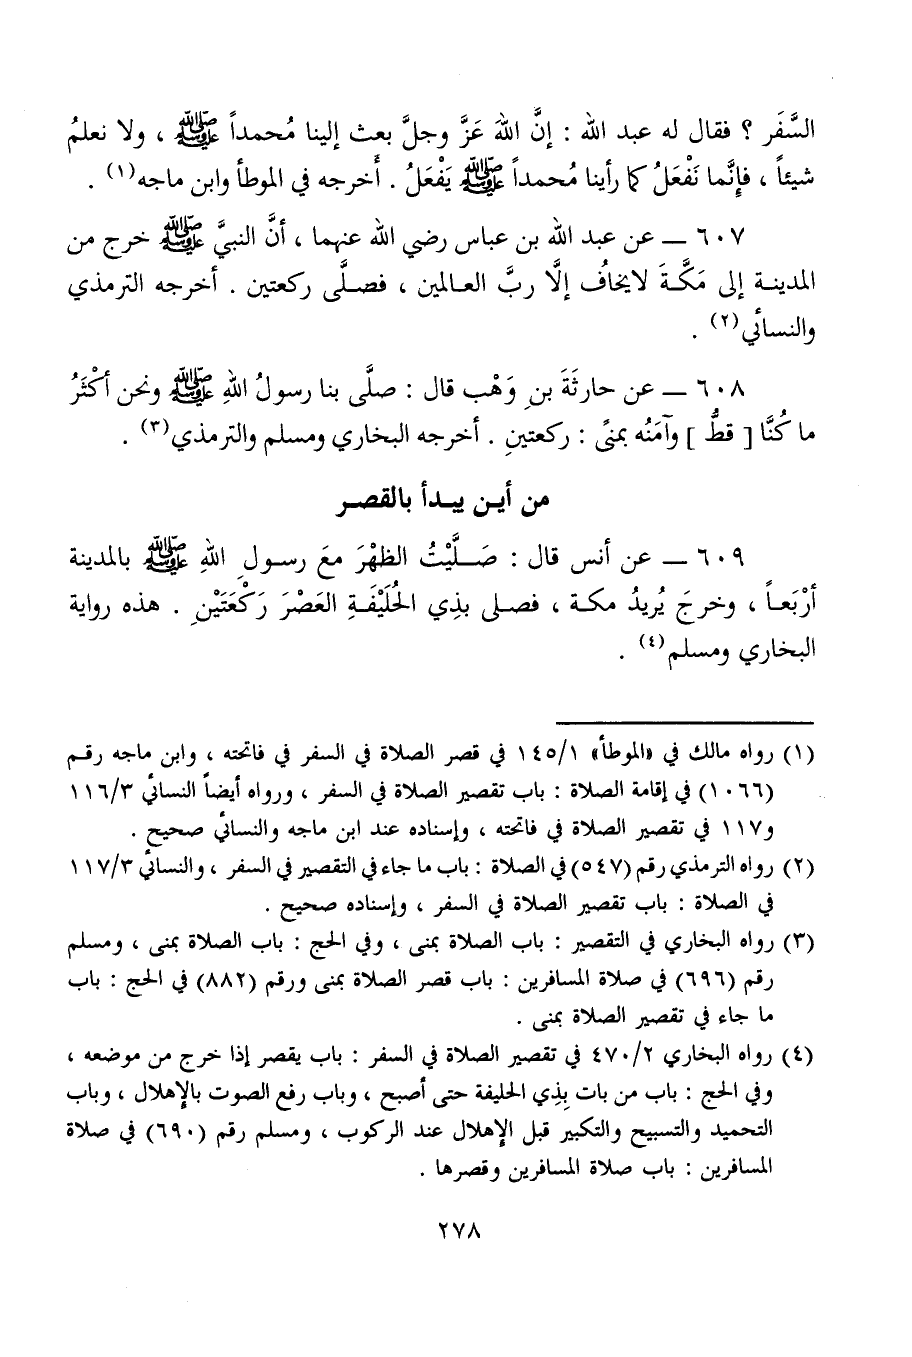 السَّفَر ؟ فقال له عبد الله : إنَّ اللهَ عَزَّ وجلَّ بعث إلينا مُحمداً ﷺ ، ولا نعلمُ
شيئاً ، فإِنَّما نَفْعَلُ كما رأينا مُحمداً ﷺ يَفْعَلُ . أخرجه في الموطأ وابن ماجه(١) .
٦٠٧ ــ عن عبد الله بن عباس رضي الله عنهما ، أنَّ النبيَّ ﷺ خرج من
المدينة إلى مَكَّةَ لايخافُ إلَّا ربَّ العالمين ، فصلَّى ركعتين . أخرجه الترمذي
والنسائي(٢) .
٦٠٨ ــ عن حارثَةَ بنِ وَهْب قال : صلَّى بنا رسولُ اللهِ ﷺ ونحن أكْثَرُ
ما كُنَّا [ قطُّ ] وآمَنُه بمنًى : ركعتينِ . أخرجه البخاري ومسلم والترمذي(٣) .
من أين يبدأ بالقصر
٦٠٩ ــ عن أنس قال : صَلَّيْتُ الظهْرَ معَ رسولِ اللهِ ﷺ بالمدينة
أرْبَعاً ، وخرجَ يُريدُ مكة ، فصلى بذِي الحُلَيْفَةِ العَصْرَ رَكْعَتَيْنِ . هذه رواية
البخاري ومسلم(٤) .
(١) رواه مالك في «الموطأ» ١٤٥/١ في قصر الصلاة في السفر في فاتحته ، وابن ماجه رقم
(١٠٦٦) في إقامة الصلاة : باب تقصير الصلاة في السفر ، ورواه أيضاً النسائي ١١٦/٣
و١١٧ في تقصير الصلاة في فاتحته ، وإسناده عند ابن ماجه والنسائي صحيح .
(٢) رواه الترمذي رقم (٥٤٧) في الصلاة : باب ما جاء في التقصير في السفر ، والنسائي ١١٧/٣
في الصلاة : باب تقصير الصلاة في السفر ، وإسناده صحيح .
(٣) رواه البخاري في التقصير : باب الصلاة بمنى ، وفي الحج : باب الصلاة بمنى ، ومسلم
رقم (٦٩٦) في صلاة المسافرين : باب قصر الصلاة بمنى ورقم (٨٨٢) في الحج : باب
ما جاء في تقصير الصلاة بمنى .
(٤) رواه البخاري ٤٧٠/٢ في تقصير الصلاة في السفر : باب يقصر إذا خرج من موضعه ،
وفي الحج : باب من بات بِذي الحليفة حتى أصبح ، وباب رفع الصوت بالإهلال ، وباب
التحميد والتسبيح والتكبير قبل الإهلال عند الركوب ، ومسلم رقم (٦٩٠) في صلاة
المسافرين : باب صلاة المسافرين وقصرها .
٢٧٨